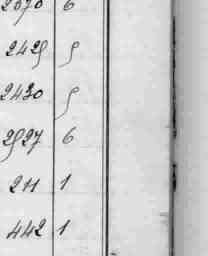 2070 6
2425 5
2430 5
2527 6
211 1
442 1